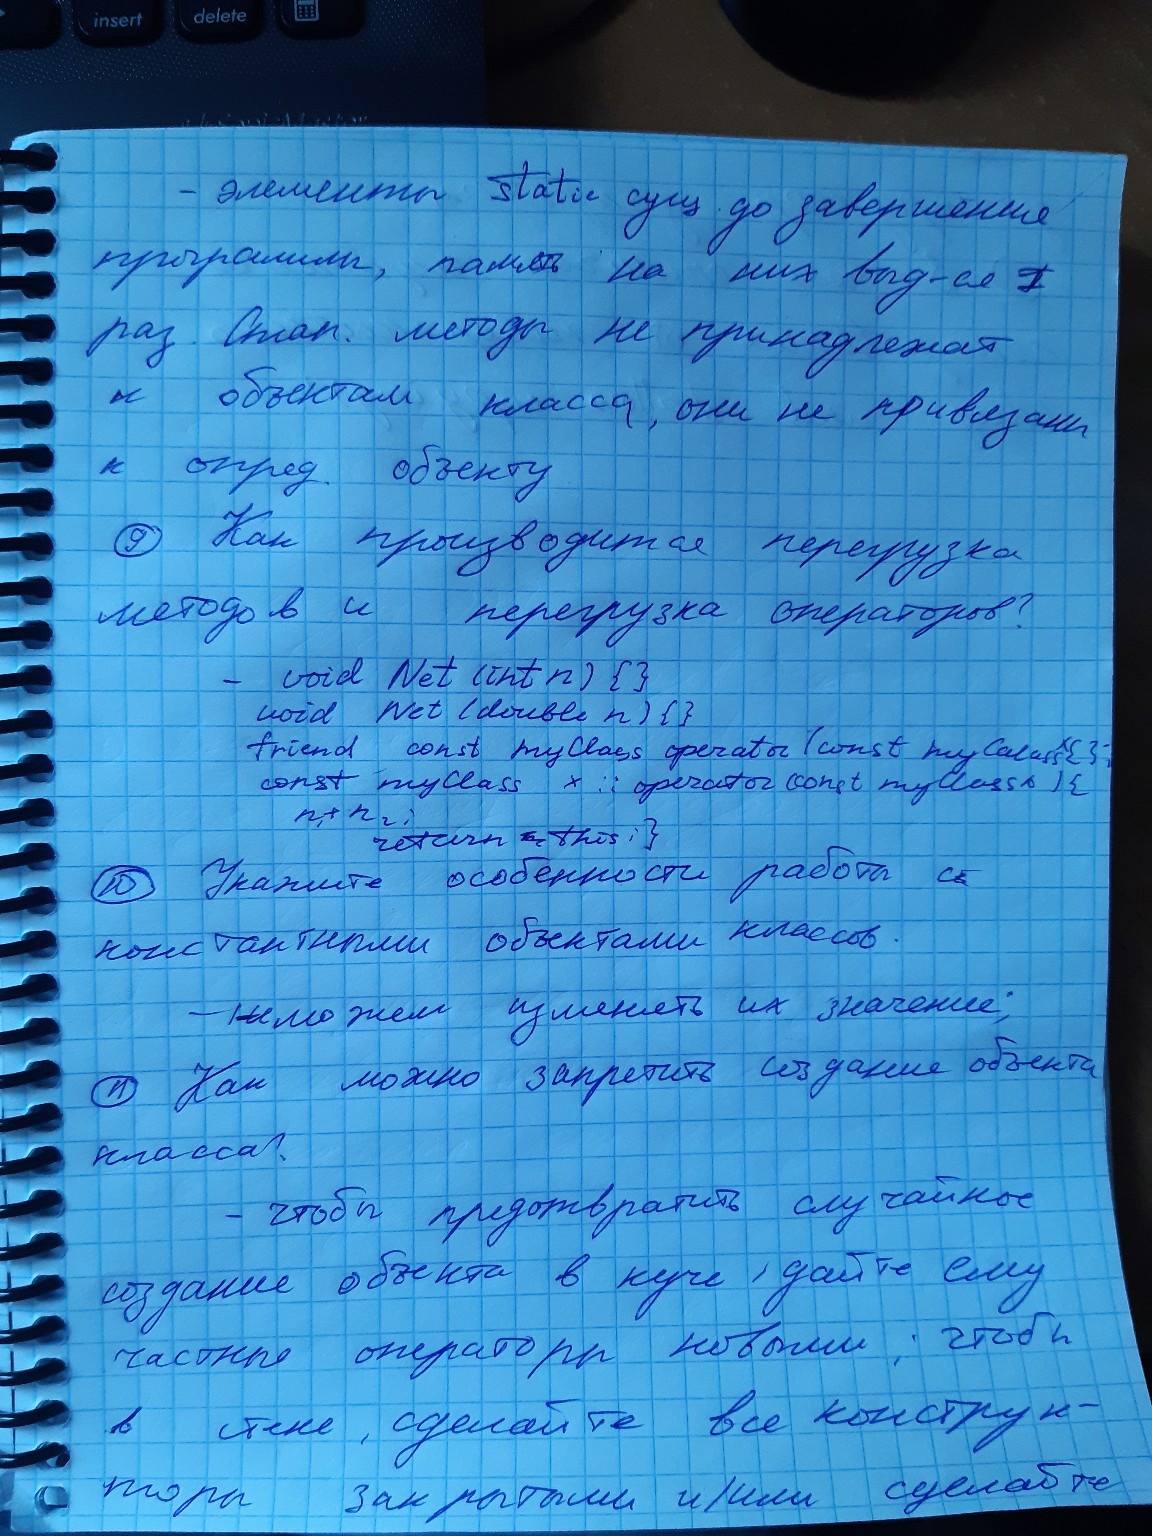 insert delete
- элементы static сущ. до завершение
программы, память на них выд-ся 1
раз. Стат. методы не принадлежат
к объектам класса, они не привязаны
к опред. объекту
⑨ Как производится перегрузка
методов и перегрузка операторов?
- void Net (int n) {}
void Net (double n) {}
friend const myClass operator (const myCalass {};
const myClass x :: operator (const myClass x ) {
n₁+n₂;
return this; }
⑩ Укажите особенности работы с
константными объектами классов.
- можем изменять их значение;
⑪ Как можно запретить создание объекта
класса?
- чтобы предотвратить случайное
создание объекта в куче, дайте ему
частные операторы новыми; чтобы
в стеке, сделайте все конструк-
торы закрытыми и/или сделайте